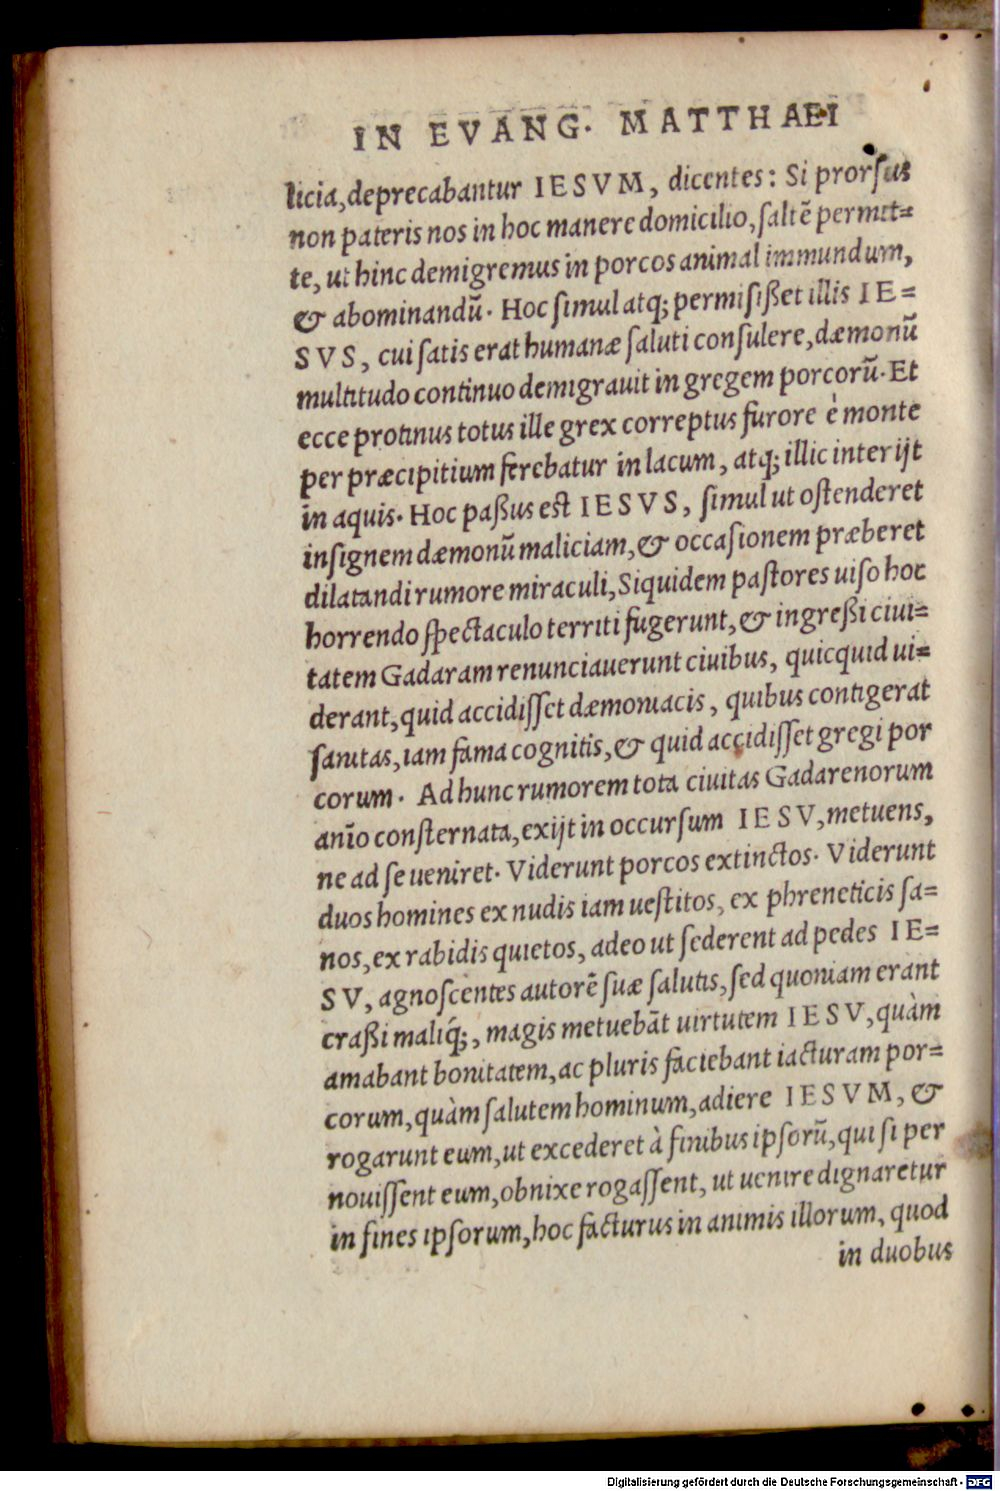 IN EVANG. MATTHAEI
licia, deprecabantur IESVM, dicentes: Si prorſus
non pateris nos in hoc manere domicilio, ſaltē permit=
te, ut hinc demigremus in porcos animal immundum,
& abominandū. Hoc ſimul atq; permiſißet illis IE=
SVS, cui ſatis erat humanæ ſaluti conſulere, dæmonū
multitudo continuo demigrauit in gregem porcorū. Et
ecce protinus totus ille grex correptus furore è monte
per præcipitium ferebatur in lacum, atq; illic interijt
in aquis. Hoc paßus est IESVS, ſimul ut oſtenderet
inſignem dæmonū maliciam, & occaſionem præberet
dilatandi rumore miraculi, Siquidem paſtores uiſo hoc
horrendo ſpectaculo territi fugerunt, & ingreßi ciui=
tatem Gadaram renunciauerunt ciuibus, quicquid ui=
derant, quid accidiſſet dæmoniacis, quibus contigerat
ſanitas, iam fama cognitis, & quid accidiſſet gregi por
corum. Ad hunc rumorem tota ciuitas Gadarenorum
anīo conſternata, exijt in occurſum IESV, metuens,
ne ad ſe ueniret. Viderunt porcos extinctos. Viderunt
duos homines ex nudis iam ueſtitos, ex phreneticis ſa=
nos, ex rabidis quietos, adeo ut ſederent ad pedes IE=
SV, agnoſcentes autorē ſuæ ſalutis, ſed quoniam erant
craßi maliq́;, magis metuebāt uirtutem IESV, quàm
amabant bonitatem, ac pluris faciebant iacturam por=
corum, quàm ſalutem hominum, adiere IESVM, &
rogarunt eum, ut excederet à finibus ipſorū, qui ſi per
nouiſſent eum, obnixe rogaſſent, ut uenire dignaretur
in fines ipſorum, hoc facturus in animis illorum, quod
in duobus
Digitalisierung gefördert durch die Deutsche Forschungsgemeinschaft - DFG